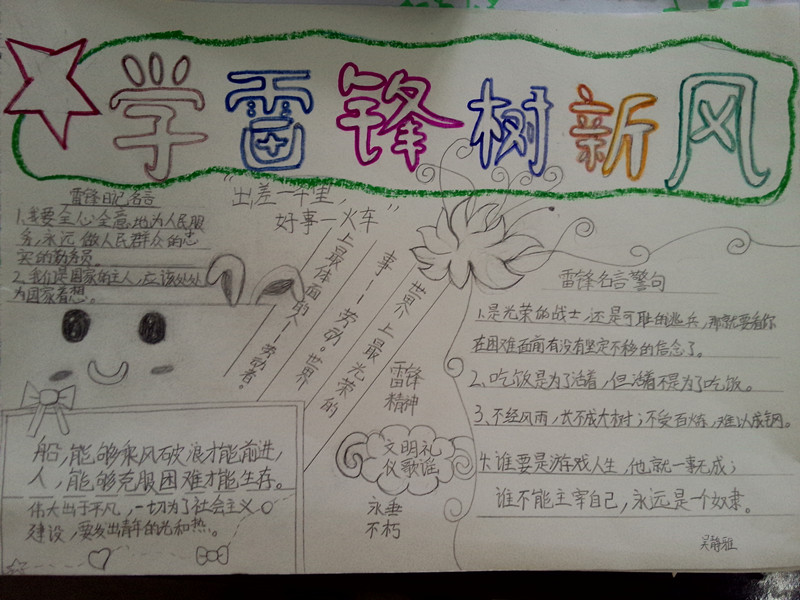 学雷锋树新风
雷锋日记名言
1、我要全心全意地为人民服
务,永远做人民群众的忠
实的勤务员。
2、我们是国家的主人,应该处处
为国家着想。
"出差一千里,
好事一火车"
世界上最光荣的
事——劳动。世界
上最体面的人——劳动者。
雷锋
精神
文明礼
仪歌谣
永垂
不朽
船,能够乘风破浪才能前进,
人,能够克服困难才能生存。
伟大出于平凡,一切为了社会主义
建设,要发出青年的光和热。
雷锋名言警句
1、是光荣的战士,还是可耻的逃兵,那就要看你
在困难面前有没有坚定不移的信念了。
2、吃饭是为了活着,但活着不是为了吃饭。
3、不经风雨,长不成大树;不受百炼,难以成钢。
4、谁要是游戏人生,他就一事无成;
谁不能主宰自己,永远是一个奴隶。
吴静雅